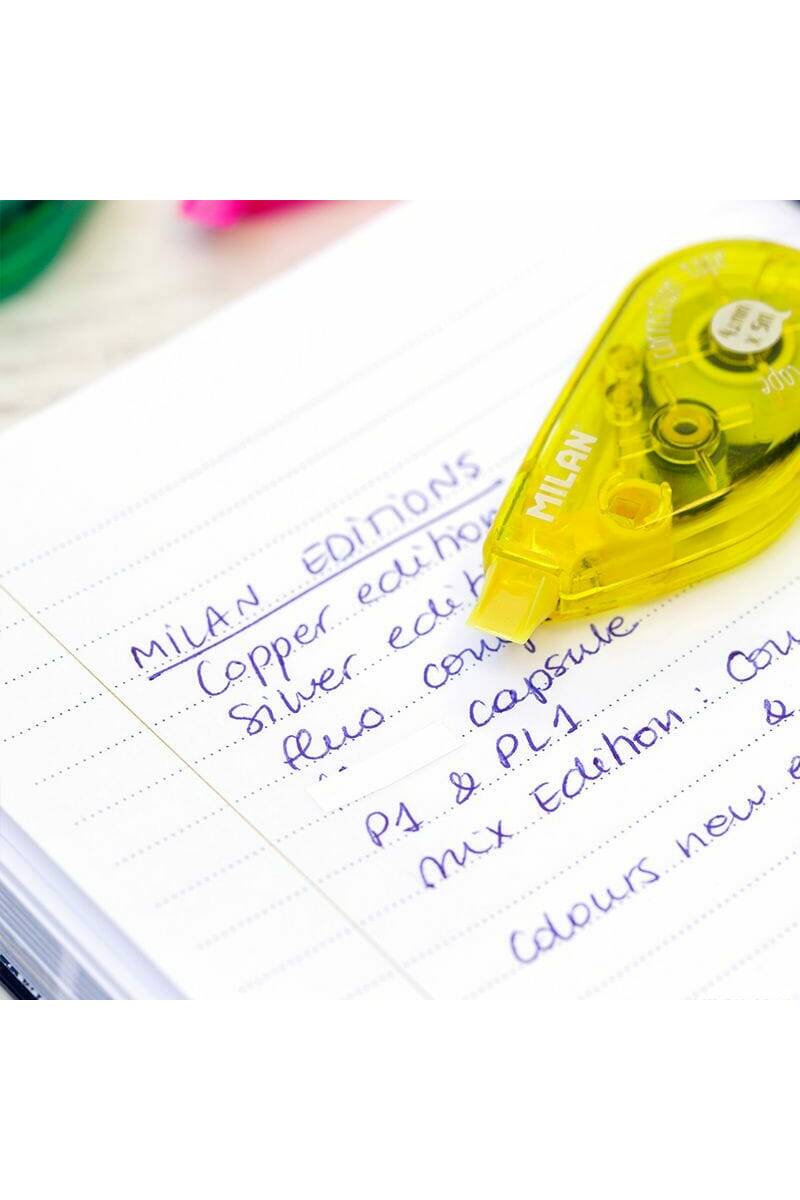 MILAN EDITIONS
Copper edition
Silver edit
fluo com
capsule
P1 & PL1
mix Edition : Con
&
Colours new e
MILAN
correction tape
tape
x 5m